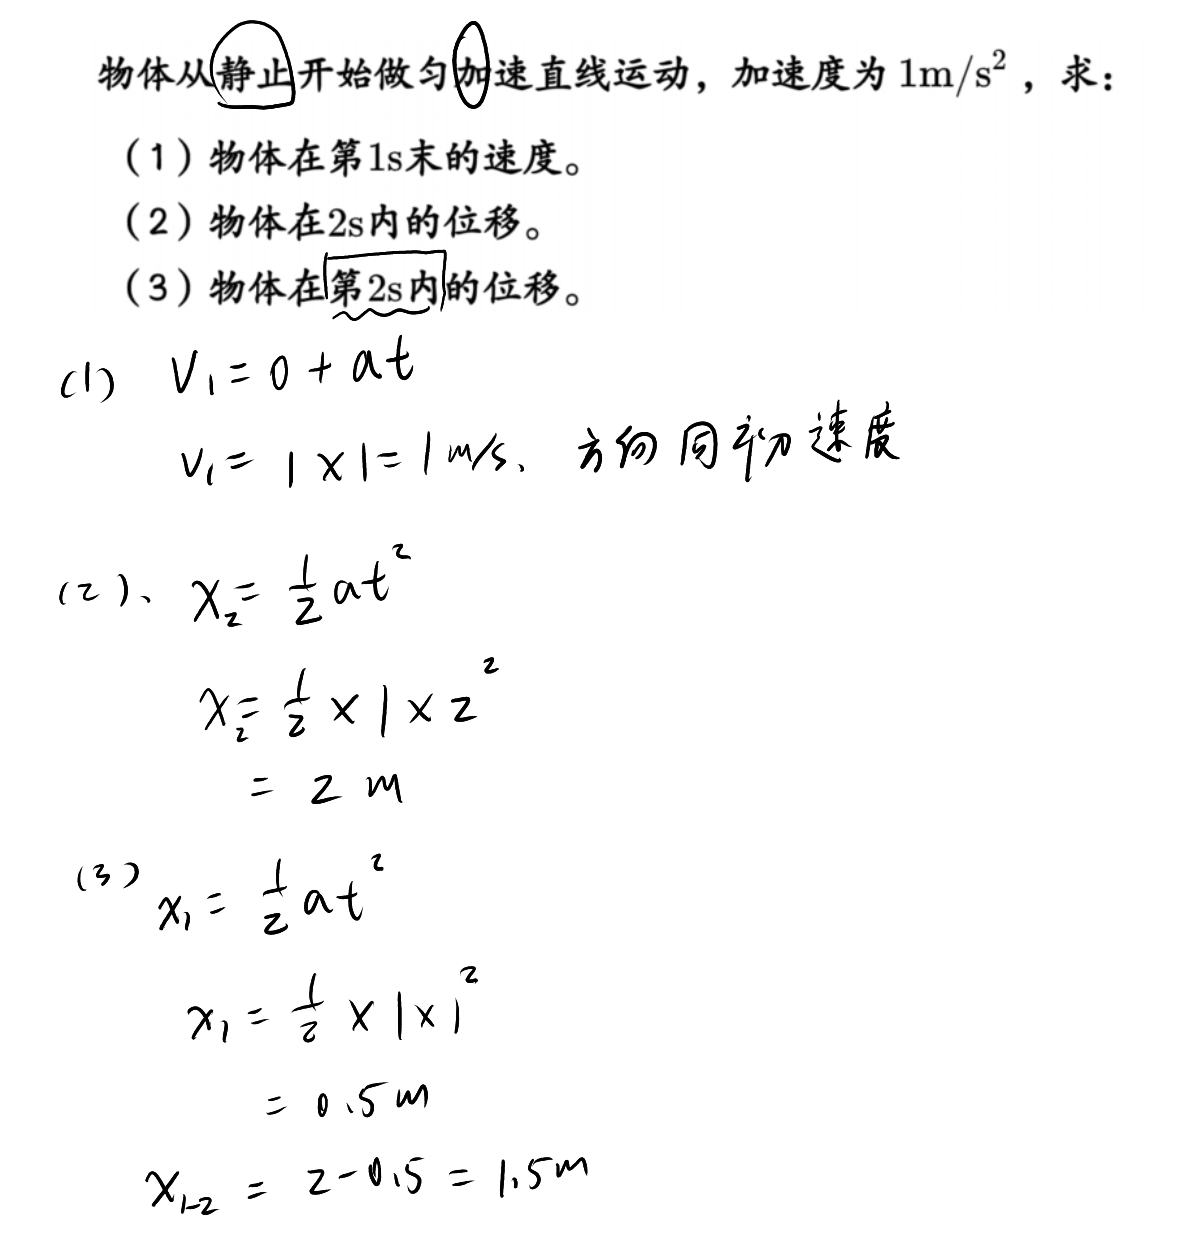 物体从静止开始做匀加速直线运动，加速度为 1m/s²，求：
（1）物体在第1s末的速度。
（2）物体在2s内的位移。
（3）物体在第2s内的位移。
(1) V₁ = 0 + at
V₁ = 1 × 1 = 1 m/s、方向同初速度
(2)、x₂ = ½at²
x₂ = ½ × 1 × 2²
= 2 m
(3) x₁ = ½at²
x₁ = ½ × 1 × 1²
= 0.5m
x₁₋₂ = 2 - 0.5 = 1.5m